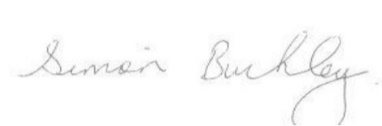 Simon Buckley